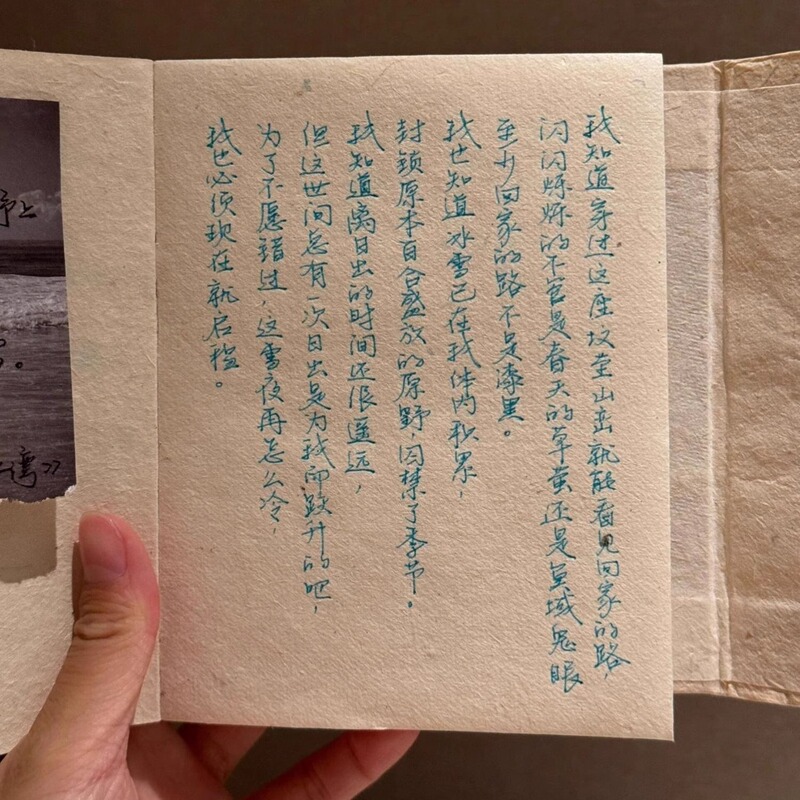 我知道穿过这座坟茔山峦就能看见回家的路，
闪闪烁烁的不管是春天的草萤还是茔域鬼眼
至少回家的路不是漆黑。
我也知道冰雪已在我体内积累，
封锁原本百合盛放的原野，囚禁了季节。
我知道离日出的时间还很遥远，
但这世间总有一次日出是为我而跃升的吧，
为了不愿错过，这雪夜再怎么冷，
我也必须现在就启程。
上
湾》